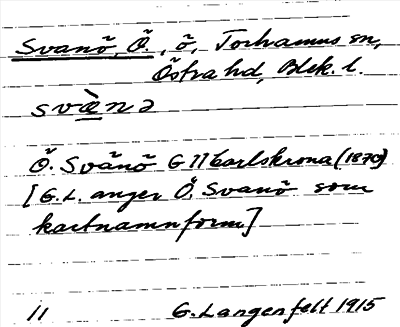 Svanö, Ö., ö, Torhamns sn,
Östra hd, Blek. l.
svä̀nə
Ö. Svänö G 11 Carlskrona (1870)
[G. L. anger Ö. Svanö som
kartnamnform]
11 G. Langenfelt 1915